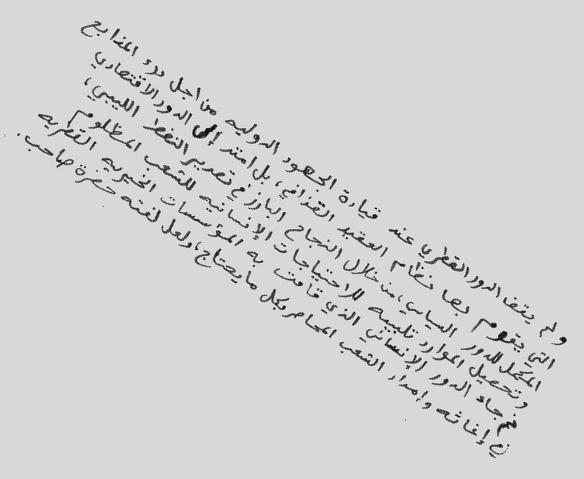 ولم يقف الدور القطري عند قيادة الجهود الدولية من اجل درء المذابح
التي يقوم بها نظام العقيد القذافي، بل امتد الى الدور الاقتصادي
المكمل للدور السياسي، من خلال النجاح البارز في تصدير النفط الليبي،
وتحصيل الموارد تلبيه للاحتياجات الإنسانيه للشعب المظلوم
ثم جاء الدور الإنساني الذي قامت به المؤسسات الخيريه القطريه
في إغاثه وإمدار الشعب المحاصر وبكل مايحتاج، ولعل لفته حضرة صاحب.